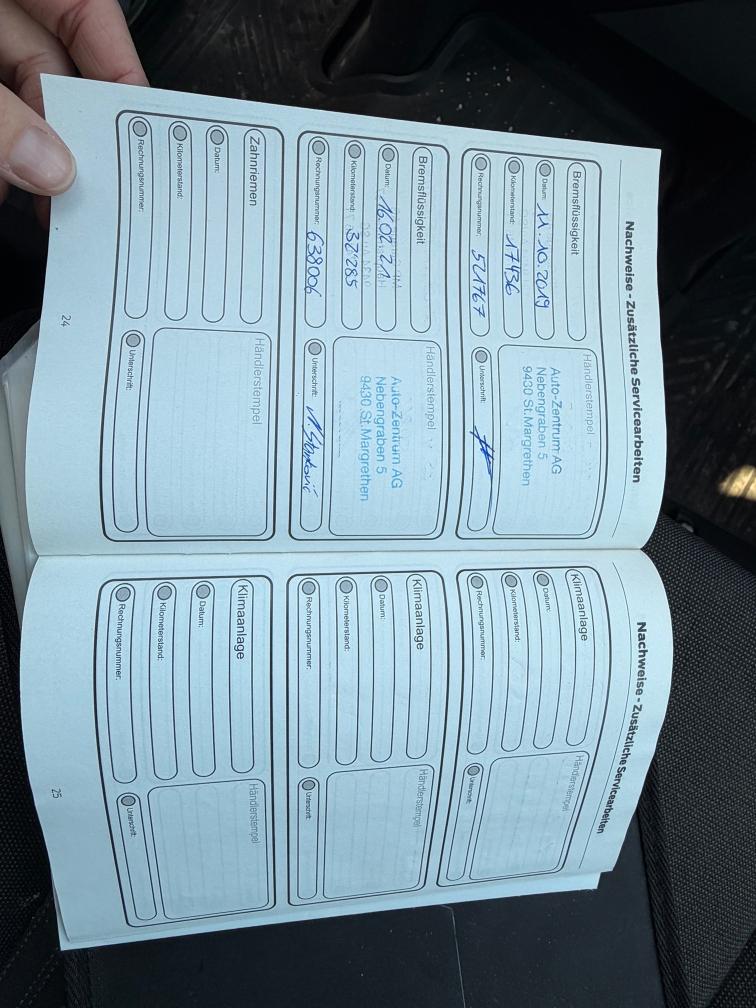 Nachweise - Zusätzliche Servicearbeiten
Bremsflüssigkeit
Datum: 11.10.2019
Kilometerstand: 17436
Rechnungsnummer: 541767
Händlerstempel
Auto-Zentrum AG
Nebengraben 5
9430 St.Margrethen
Unterschrift:
Bremsflüssigkeit
Datum: 16.02.21
Kilometerstand: 32'285
Rechnungsnummer: 638006
Händlerstempel
Auto-Zentrum AG
Nebengraben 5
9430 St.Margrethen
Unterschrift:
Zahnriemen
Datum:
Kilometerstand:
Rechnungsnummer:
Händlerstempel
Unterschrift:
24
Nachweise - Zusätzliche Servicearbeiten
Klimaanlage
Datum:
Kilometerstand:
Rechnungsnummer:
Händlerstempel
Unterschrift:
Klimaanlage
Datum:
Kilometerstand:
Rechnungsnummer:
Händlerstempel
Unterschrift:
Klimaanlage
Datum:
Kilometerstand:
Rechnungsnummer:
Händlerstempel
Unterschrift:
25